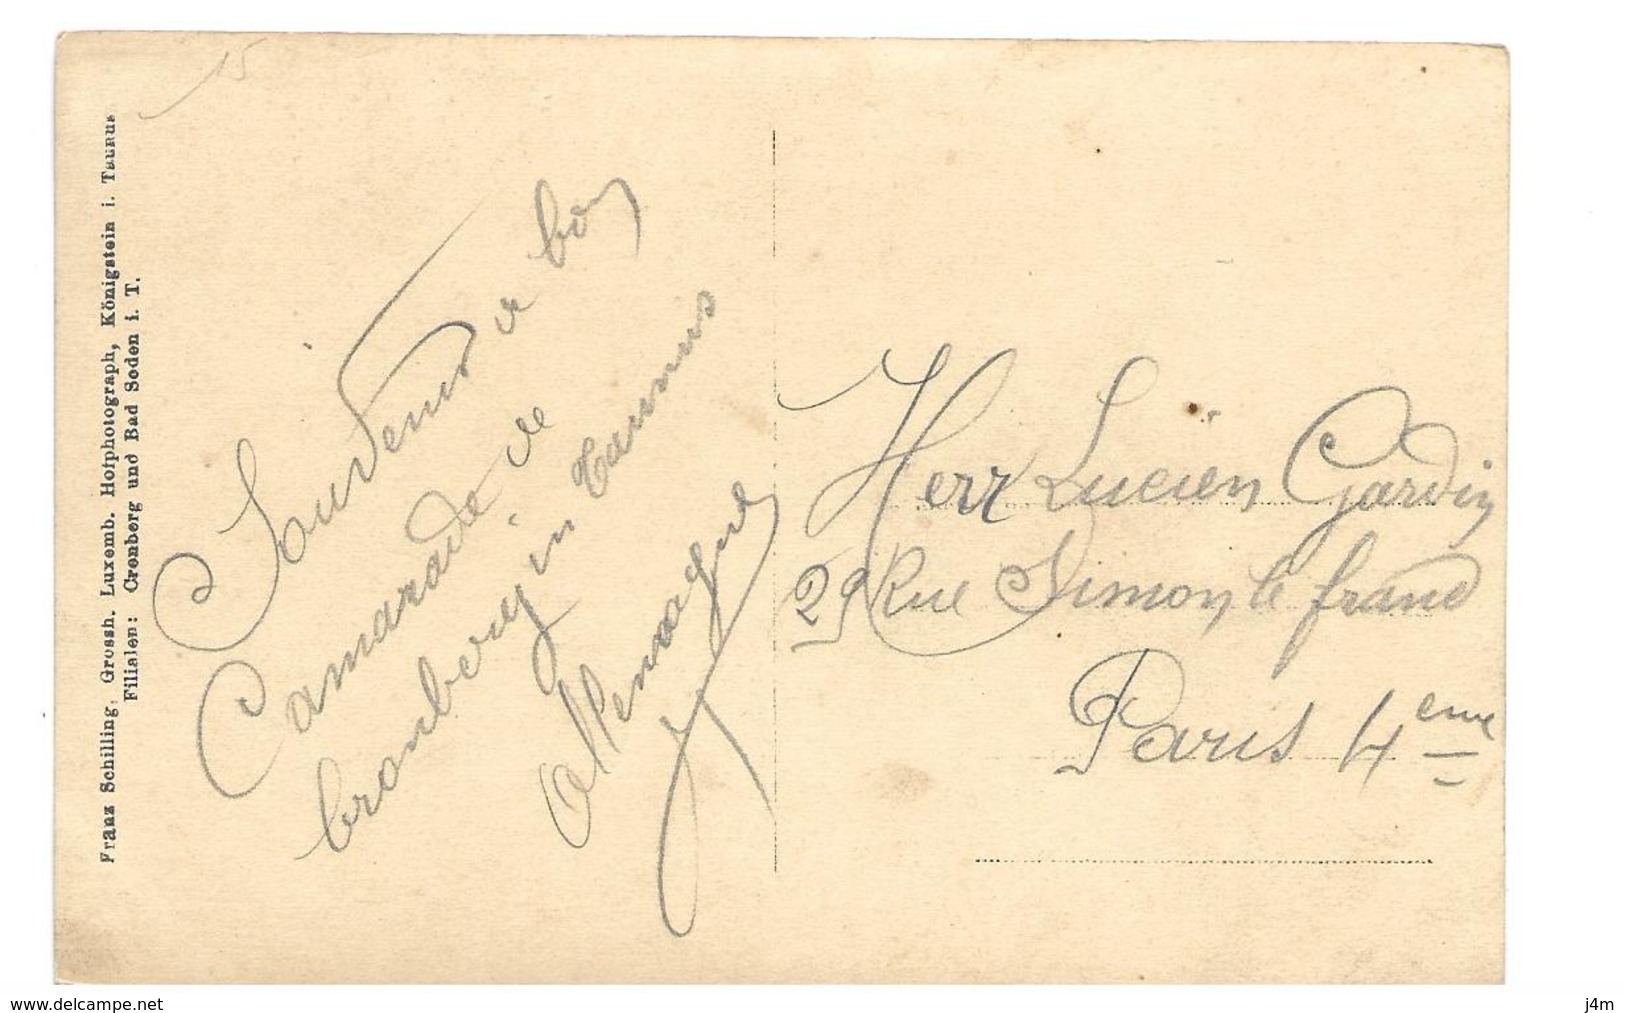 15
Franz Schilling, Grossh. Luxemb. Hofphotograph, Königstein i. Taunus
Filialen: Cronberg und Bad Soden i. T.
Souvenir de bon
Camarade de
Cronberg in Taunus
Allemagne
Herr Lucien Gardin
29 Rue Simon le franc
Paris 4eme
www.delcampe.net
j4m